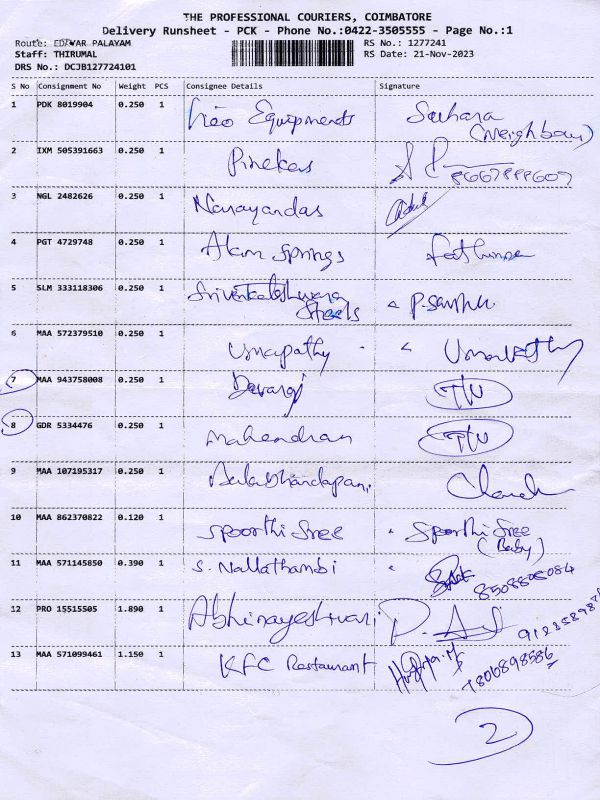 THE PROFESSIONAL COURIERS, COIMBATORE
Delivery Runsheet - PCK - Phone No.:0422-3505555 - Page No.:1
Route: EDYAR PALAYAM
RS No.: 1277241
Staff: THIRUMAL
RS Date: 21-Nov-2023
DRS No.: DCJB127724101
S No Consignment No Weight PCS Consignee Details Signature
1 PDK 8019904 0.250 1 Equipments
(Neighbour)
2 IXM 505391663 0.250 1 Pinekas
3 NGL 2482626 0.250 1 Narayandas
4 PGT 4729748 0.250 1 Alam Springs
5 SLM 333118306 0.250 1 Srivenkateshwara
Steels
6 MAA 572379510 0.250 1 Umapathy
7 MAA 943758008 0.250 1 Devaraj
8 GDR 5334476 0.250 1 Mahendran
9 MAA 107195317 0.250 1
10 MAA 862370822 0.120 1 Spoorthi Sree Spoorthi Sree
(Baby)
11 MAA 571145850 0.390 1 S. Nallathambi
12 PRO 15515505 1.890 1 Abhinayeshwari
13 MAA 571099461 1.150 1 KFC Restaurant
7806898586
2